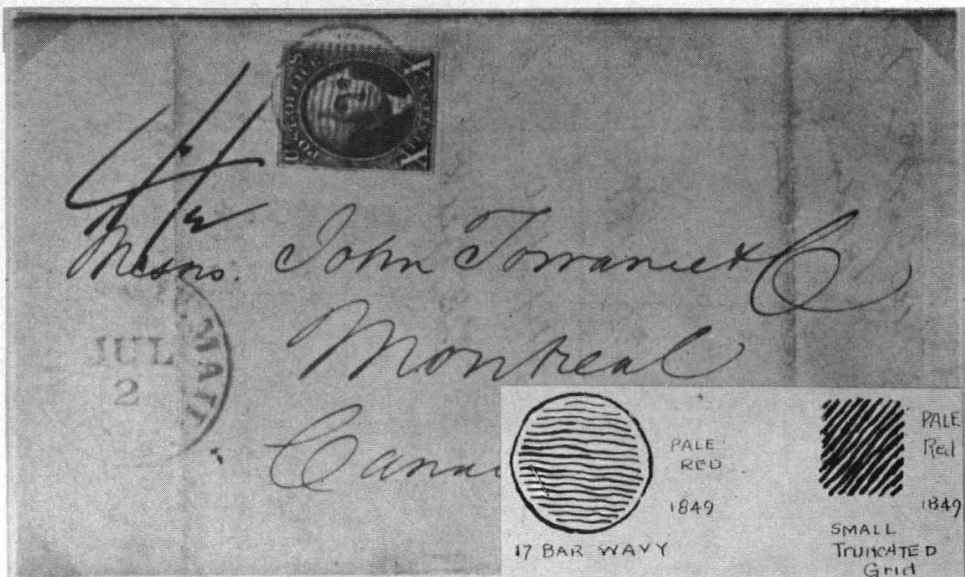 POST OFFICE
X X
Messrs. John Torrance & Co
Montreal
MAIL
JUL
2
PALE
RED
1849
17 BAR WAVY
PALE
Red
1849
SMALL
TRUNCATED
Grid